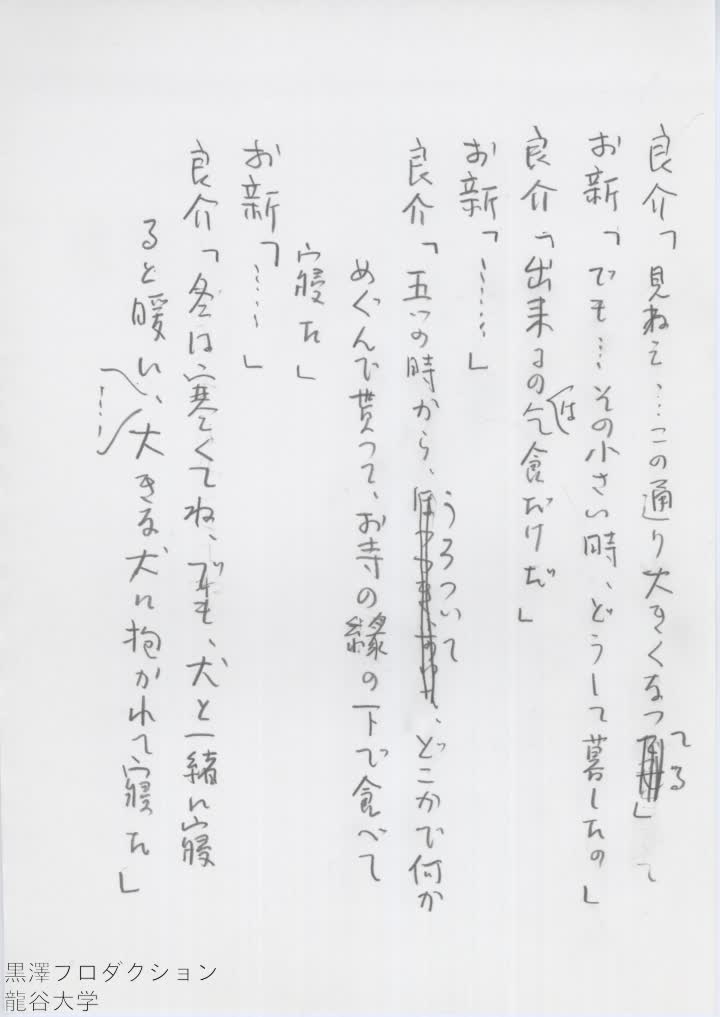 良介「見ねえ…この通り大きくなってる」
お新「でも…その小さい時、どうして暮したの」
良介「出来るのは乞食だけだ」
お新「……」
良介「五つの時から、うろついて、どこかで何か
めぐんで貰って、お寺の縁の下で食べて
寝た」
お新「……」
良介「冬は寒くてね、でも、犬と一緒に寝
ると暖い、……大きな犬に抱かれて寝た」
黒澤プロダクション
龍谷大学